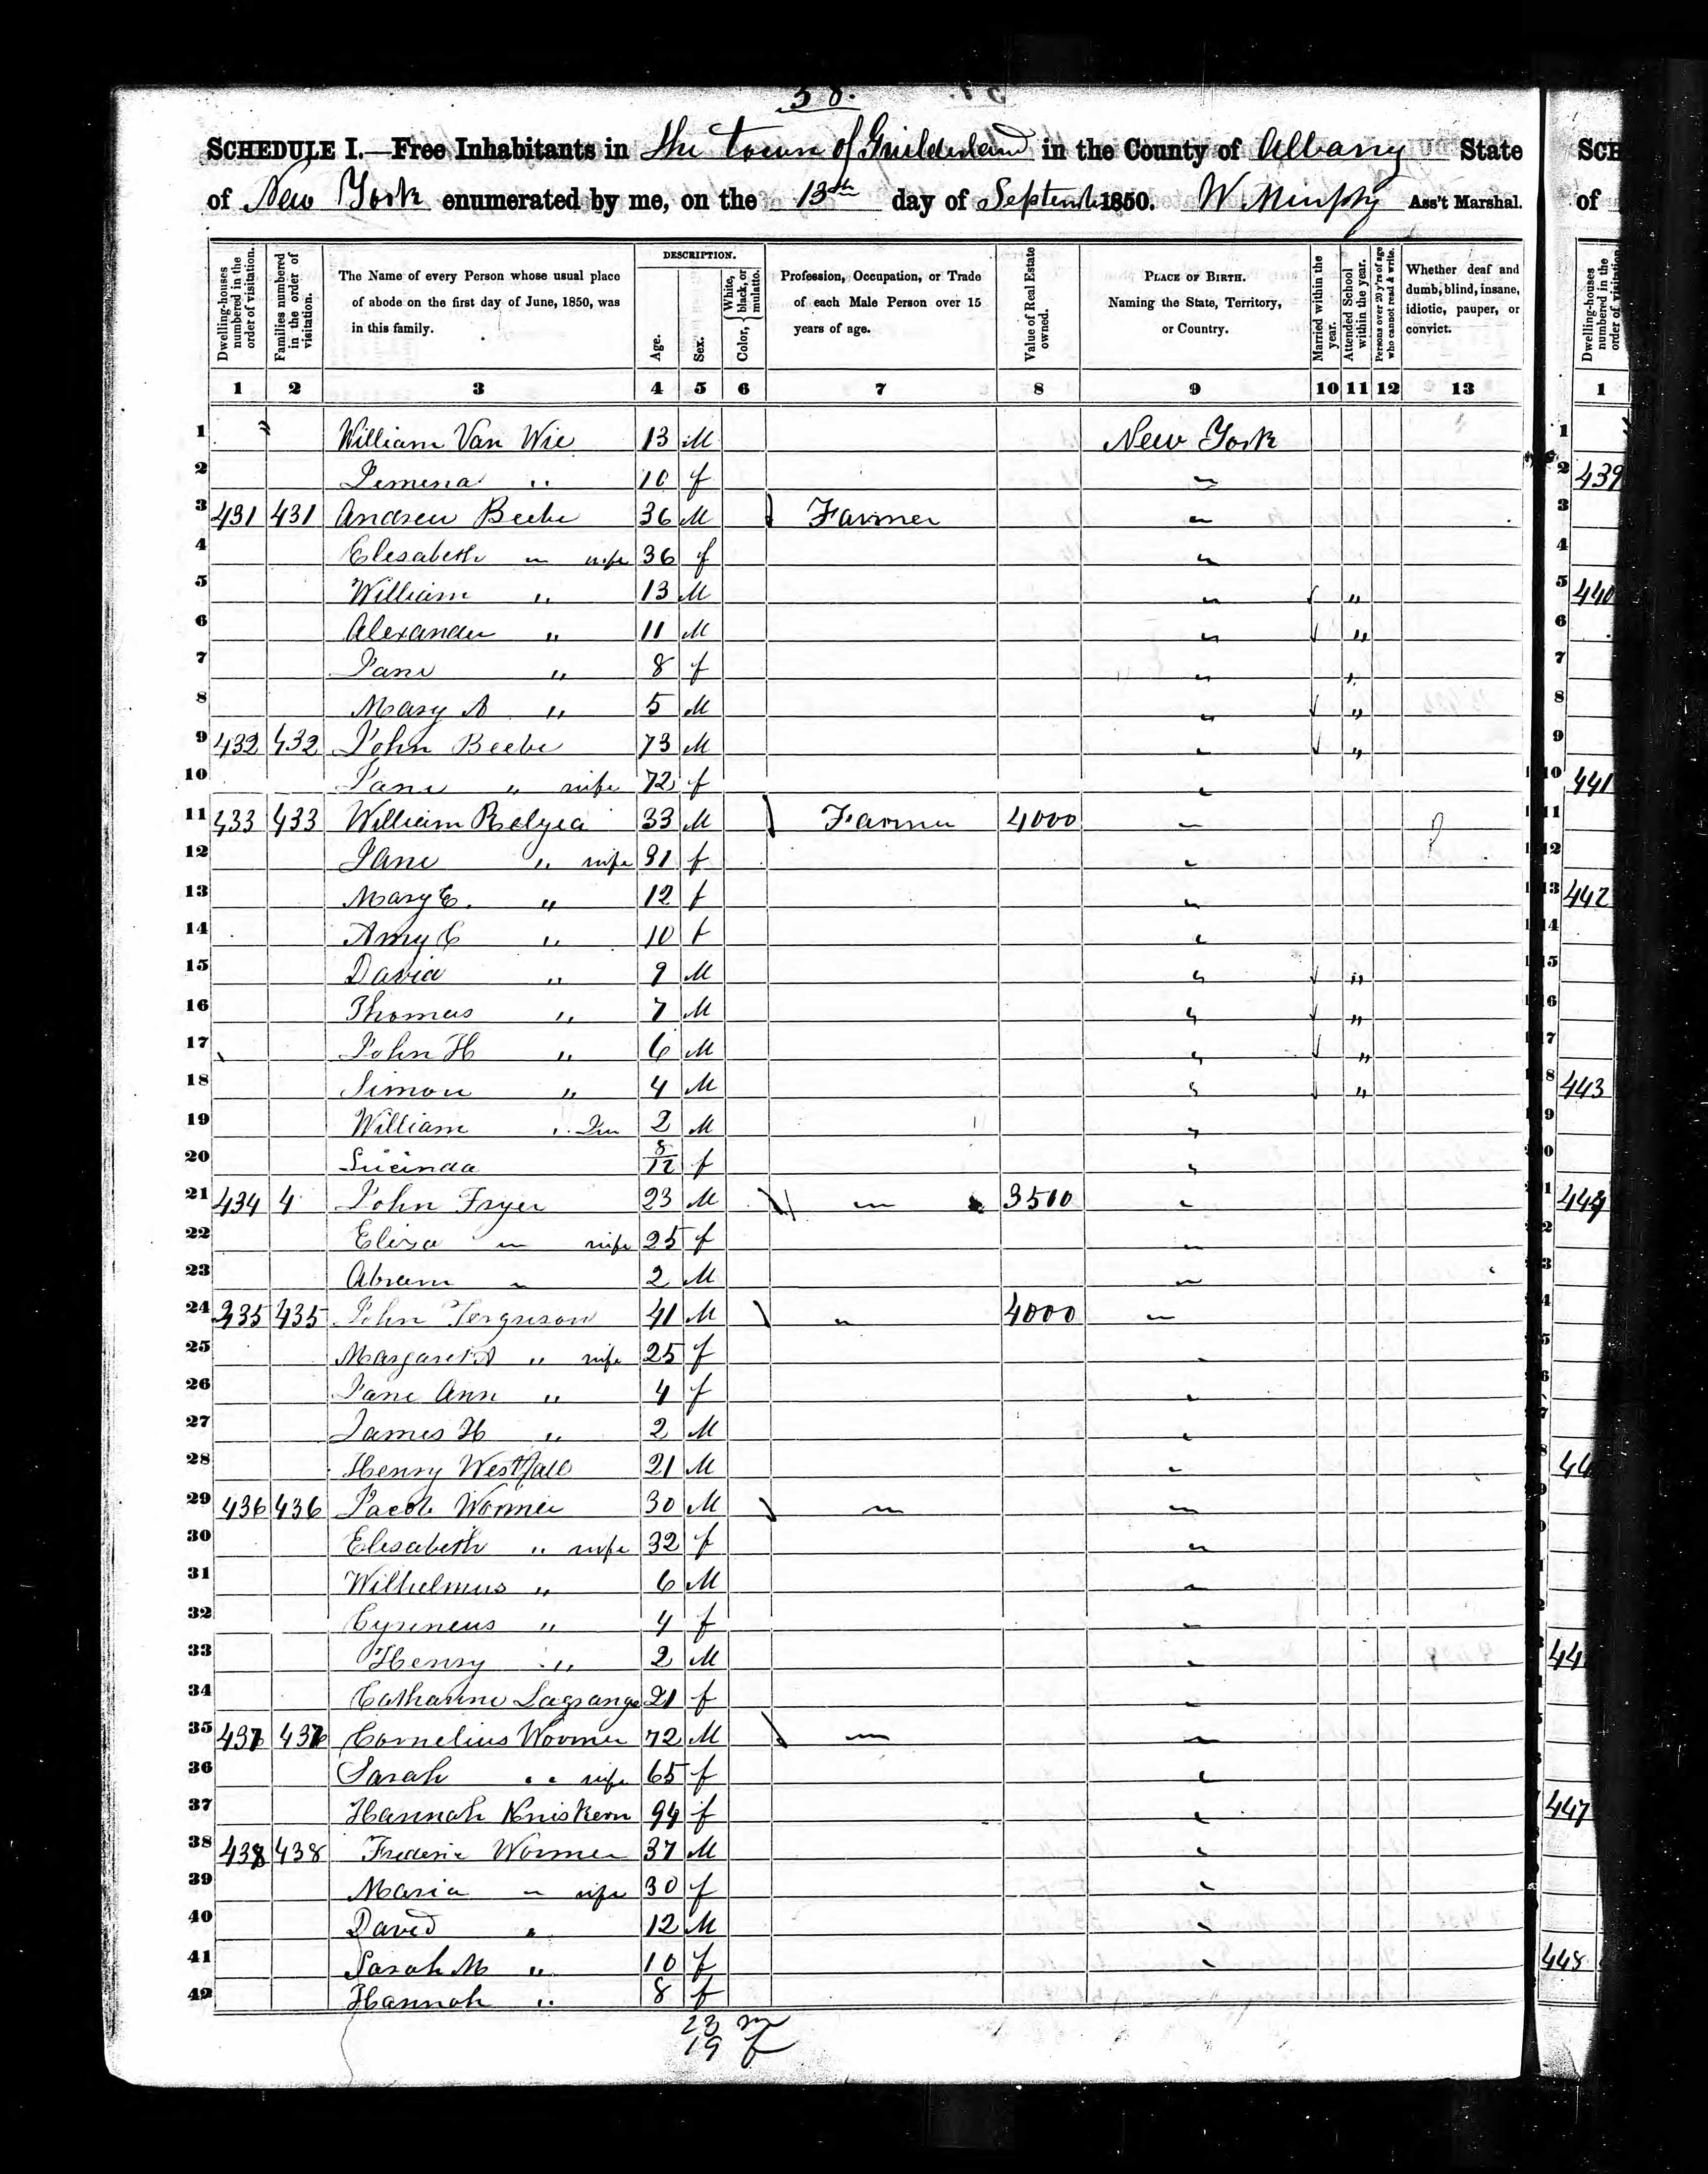 38.
SCHEDULE I.—Free Inhabitants in the town of Guilderland in the County of Albany State
of New York enumerated by me, on the 13th day of Septemb 1850. W Murphy Ass't Marshal.
Dwelling-houses numbered in the order of visitation.
Families numbered in the order of visitation.
The Name of every Person whose usual place of abode on the first day of June, 1850, was in this family.
DESCRIPTION.
Age.
Sex.
Color, { White, black, or mulatto.
Profession, Occupation, or Trade of each Male Person over 15 years of age.
Value of Real Estate owned.
PLACE OF BIRTH. Naming the State, Territory, or Country.
Married within the year.
Attended School within the year.
Persons over 20 y'rs of age who cannot read & write.
Whether deaf and dumb, blind, insane, idiotic, pauper, or convict.
1 2 3 4 5 6 7 8 9 10 11 12 13
1 William Van Wie 13 M New York
2 Jemena " 10 f "
3 431 431 Andrew Beebe 36 M Farmer "
4 Elesabeth " wife 36 f "
5 William " 13 M " "
6 Alexander " 11 M " "
7 Jane " 8 f " "
8 Mary A " 5 M " "
9 432 432 John Beebe 73 M " "
10 Jane " wife 72 f "
11 433 433 William Relyea 33 M Farmer 4000 "
12 Jane " wife 31 f "
13 Mary E. " 12 f "
14 Amy C " 10 f "
15 David " 9 M " "
16 Thomas " 7 M " "
17 John H " 6 M " "
18 Simon " 4 M " "
19 William " Jun 2 M "
20 Lucinda 8/12 f "
21 434 4 John Fryer 23 M " 3500 "
22 Eliza " wife 25 f "
23 Abram " 2 M "
24 435 435 John Ferguson 41 M " 4000 "
25 Margaret A " wife 25 f "
26 Jane Ann " 4 f "
27 James H " 2 M "
28 Henry Westfall 21 M "
29 436 436 Jacob Wormer 30 M " "
30 Elesabeth " wife 32 f "
31 Wilhelmus " 6 M "
32 Cyreneus " 4 f "
33 Henry " 2 M "
34 Catharine Lagrange 21 f "
35 437 437 Cornelius Wormer 72 M " "
36 Sarah " wife 65 f "
37 Hannah Kniskern 94 f "
38 438 438 Frederic Wormer 37 M "
39 Maria " wife 30 f "
40 David " 12 M "
41 Sarah M " 10 f "
42 Hannah " 8 f
23 m
19 f
SCH
of
Dwelling-houses numbered in the order of visitation
1
439
440
441
442
443
444
44
44
447
448